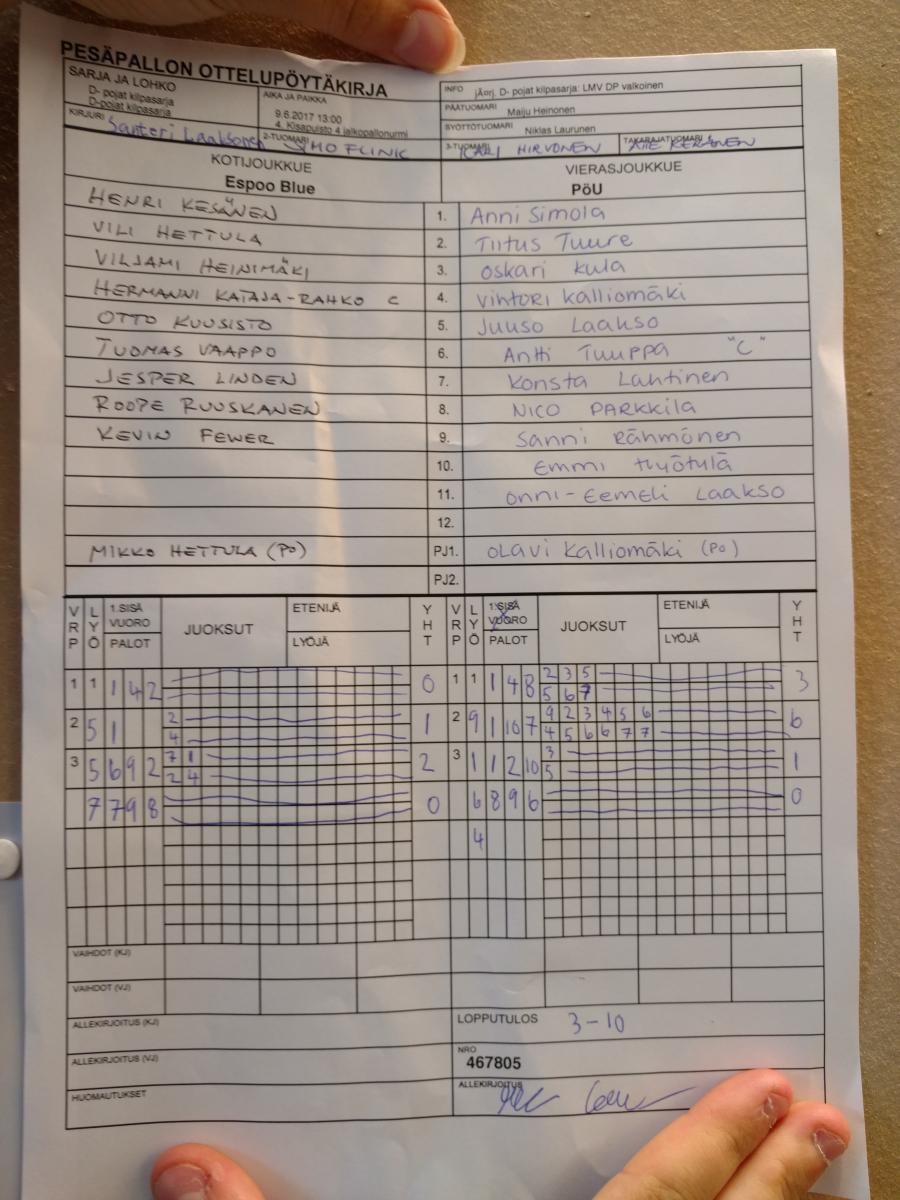 PESÄPALLON OTTELUPÖYTÄKIRJA
SARJA JA LOHKO
D- pojat kilpasarja
D-pojat kilpasarja
AIKA JA PAIKKA
9.6.2017 13:00
4. Kisapuisto 4 jalkopallonurmi
INFO jÄorj. D- pojat kilpasarja: LMV DP valkoinen
PÄÄTUOMARI Maiju Heinonen
SYÖTTÖTUOMARI Niklas Laurunen
KIRJURI Santeri Laaksonen 2-TUOMARI FLINK
3-TUOMARI KARI HIRVONEN TAKARAJATUOMARI KERÄNEN
KOTIJOUKKUE
Espoo Blue
VIERASJOUKKUE
PöU
HENRI KESÄNEN 1. Anni Simola
VILI HETTULA 2. Tiitus Tuure
VILJAMI HEINIMÄKI 3. Oskari Kula
HERMANNI KATAJA-RAHKO C 4. Vihtori Kalliomäki
OTTO KUUSISTO 5. Juuso Laakso
TUOMAS VAAPPO 6. Antti Tuuppa "C"
JESPER LINDEN 7. Konsta Lahtinen
ROOPE RUUSKANEN 8. NICO PARKKILA
KEVIN FEWER 9. Sanni Rähmönen
10. Emmi työtylä
11. Onni-Eemeli Laakso
12.
MIKKO HETTULA (PO) PJ1. OLAVI Kalliomäki (PO)
PJ2.
VRP LYÖ 1.SISÄ VUORO PALOT JUOKSUT ETENIJÄ LYÖJÄ YHT VRP LYÖ 1.SISÄ VUORO PALOT JUOKSUT ETENIJÄ LYÖJÄ YHT
1 1 1 4 2 0 1 1 1 4 8 2 3 5 3
5 6 7
2 5 1 2 1 2 9 1 10 7 9 2 3 4 5 6 6
4 4 5 6 6 7 7
3 5 6 9 2 7 1 2 3 1 1 2 10 3 1
2 4 5
7 7 9 8 0 6 8 9 6 0
4
VAIHDOT (KJ)
VAIHDOT (VJ)
ALLEKIRJOITUS (KJ) LOPPUTULOS 3-10
ALLEKIRJOITUS (VJ) NRO
467805
HUOMAUTUKSET ALLEKIRJOITUS